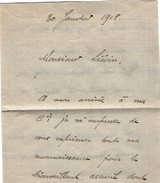 30 Janvier 1918.
Monsieur
A mon arrivée à ma
Cie je m'empresse de
vous exprimer toute ma
reconnaissance pour le
bienveillant accueil dont